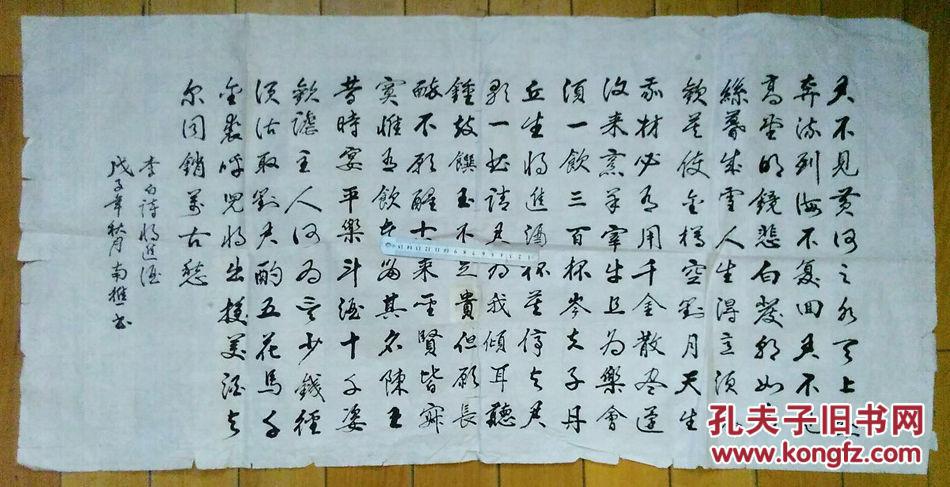 君不見黃河之水天上來
奔流到海不復回君不見
高堂明鏡悲白髮朝如青
絲暮成雪人生得意須盡
歡莫使金樽空對月天生
我材必有用千金散盡還
復來烹羊宰牛且為樂會
須一飲三百杯岑夫子丹
丘生將進酒杯莫停與君
歌一曲請君為我傾耳聽
鐘鼓饌玉不足貴但願長
醉不願醒古來聖賢皆寂
寞惟有飲者留其名陳王
昔時宴平樂斗酒十千恣
歡謔主人何為言少錢徑
須沽取對君酌五花馬千
金裘呼兒將出換美酒與
尔同銷萬古愁
李白詩將進酒
戊子年秋月南樵書
孔夫子旧书网
www.kongfz.com